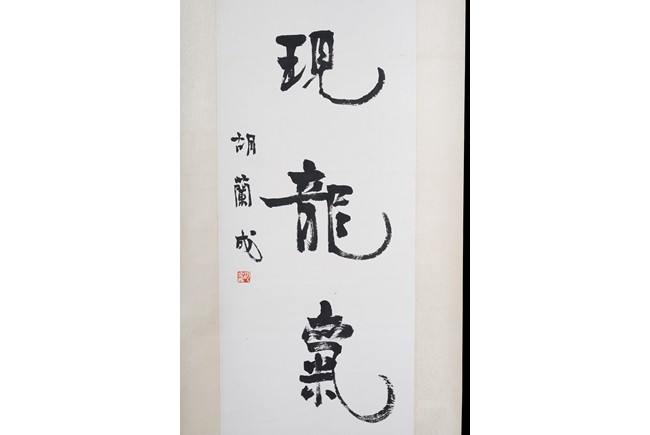 現龍氣
胡蘭成